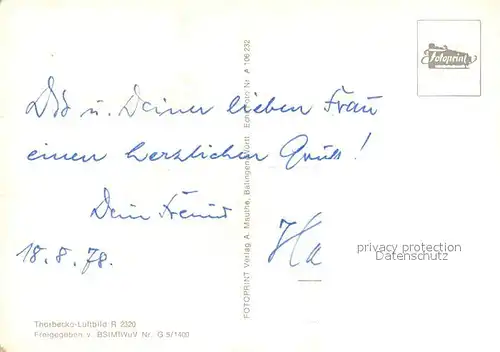 Dir u. Deiner lieben Frau
einen herzlichen Gruß!
Dein Freund
18. 8. 78.
Fotoprint
FOTOPRINT Verlag A. Mauthe, Balingen Württ. Echt Foto Nr. A 106 232
privacy protection
Datenschutz
Thorbecke-Luftbild R 2320
Freigegeben v. BStMfWuV Nr. G 5/1400